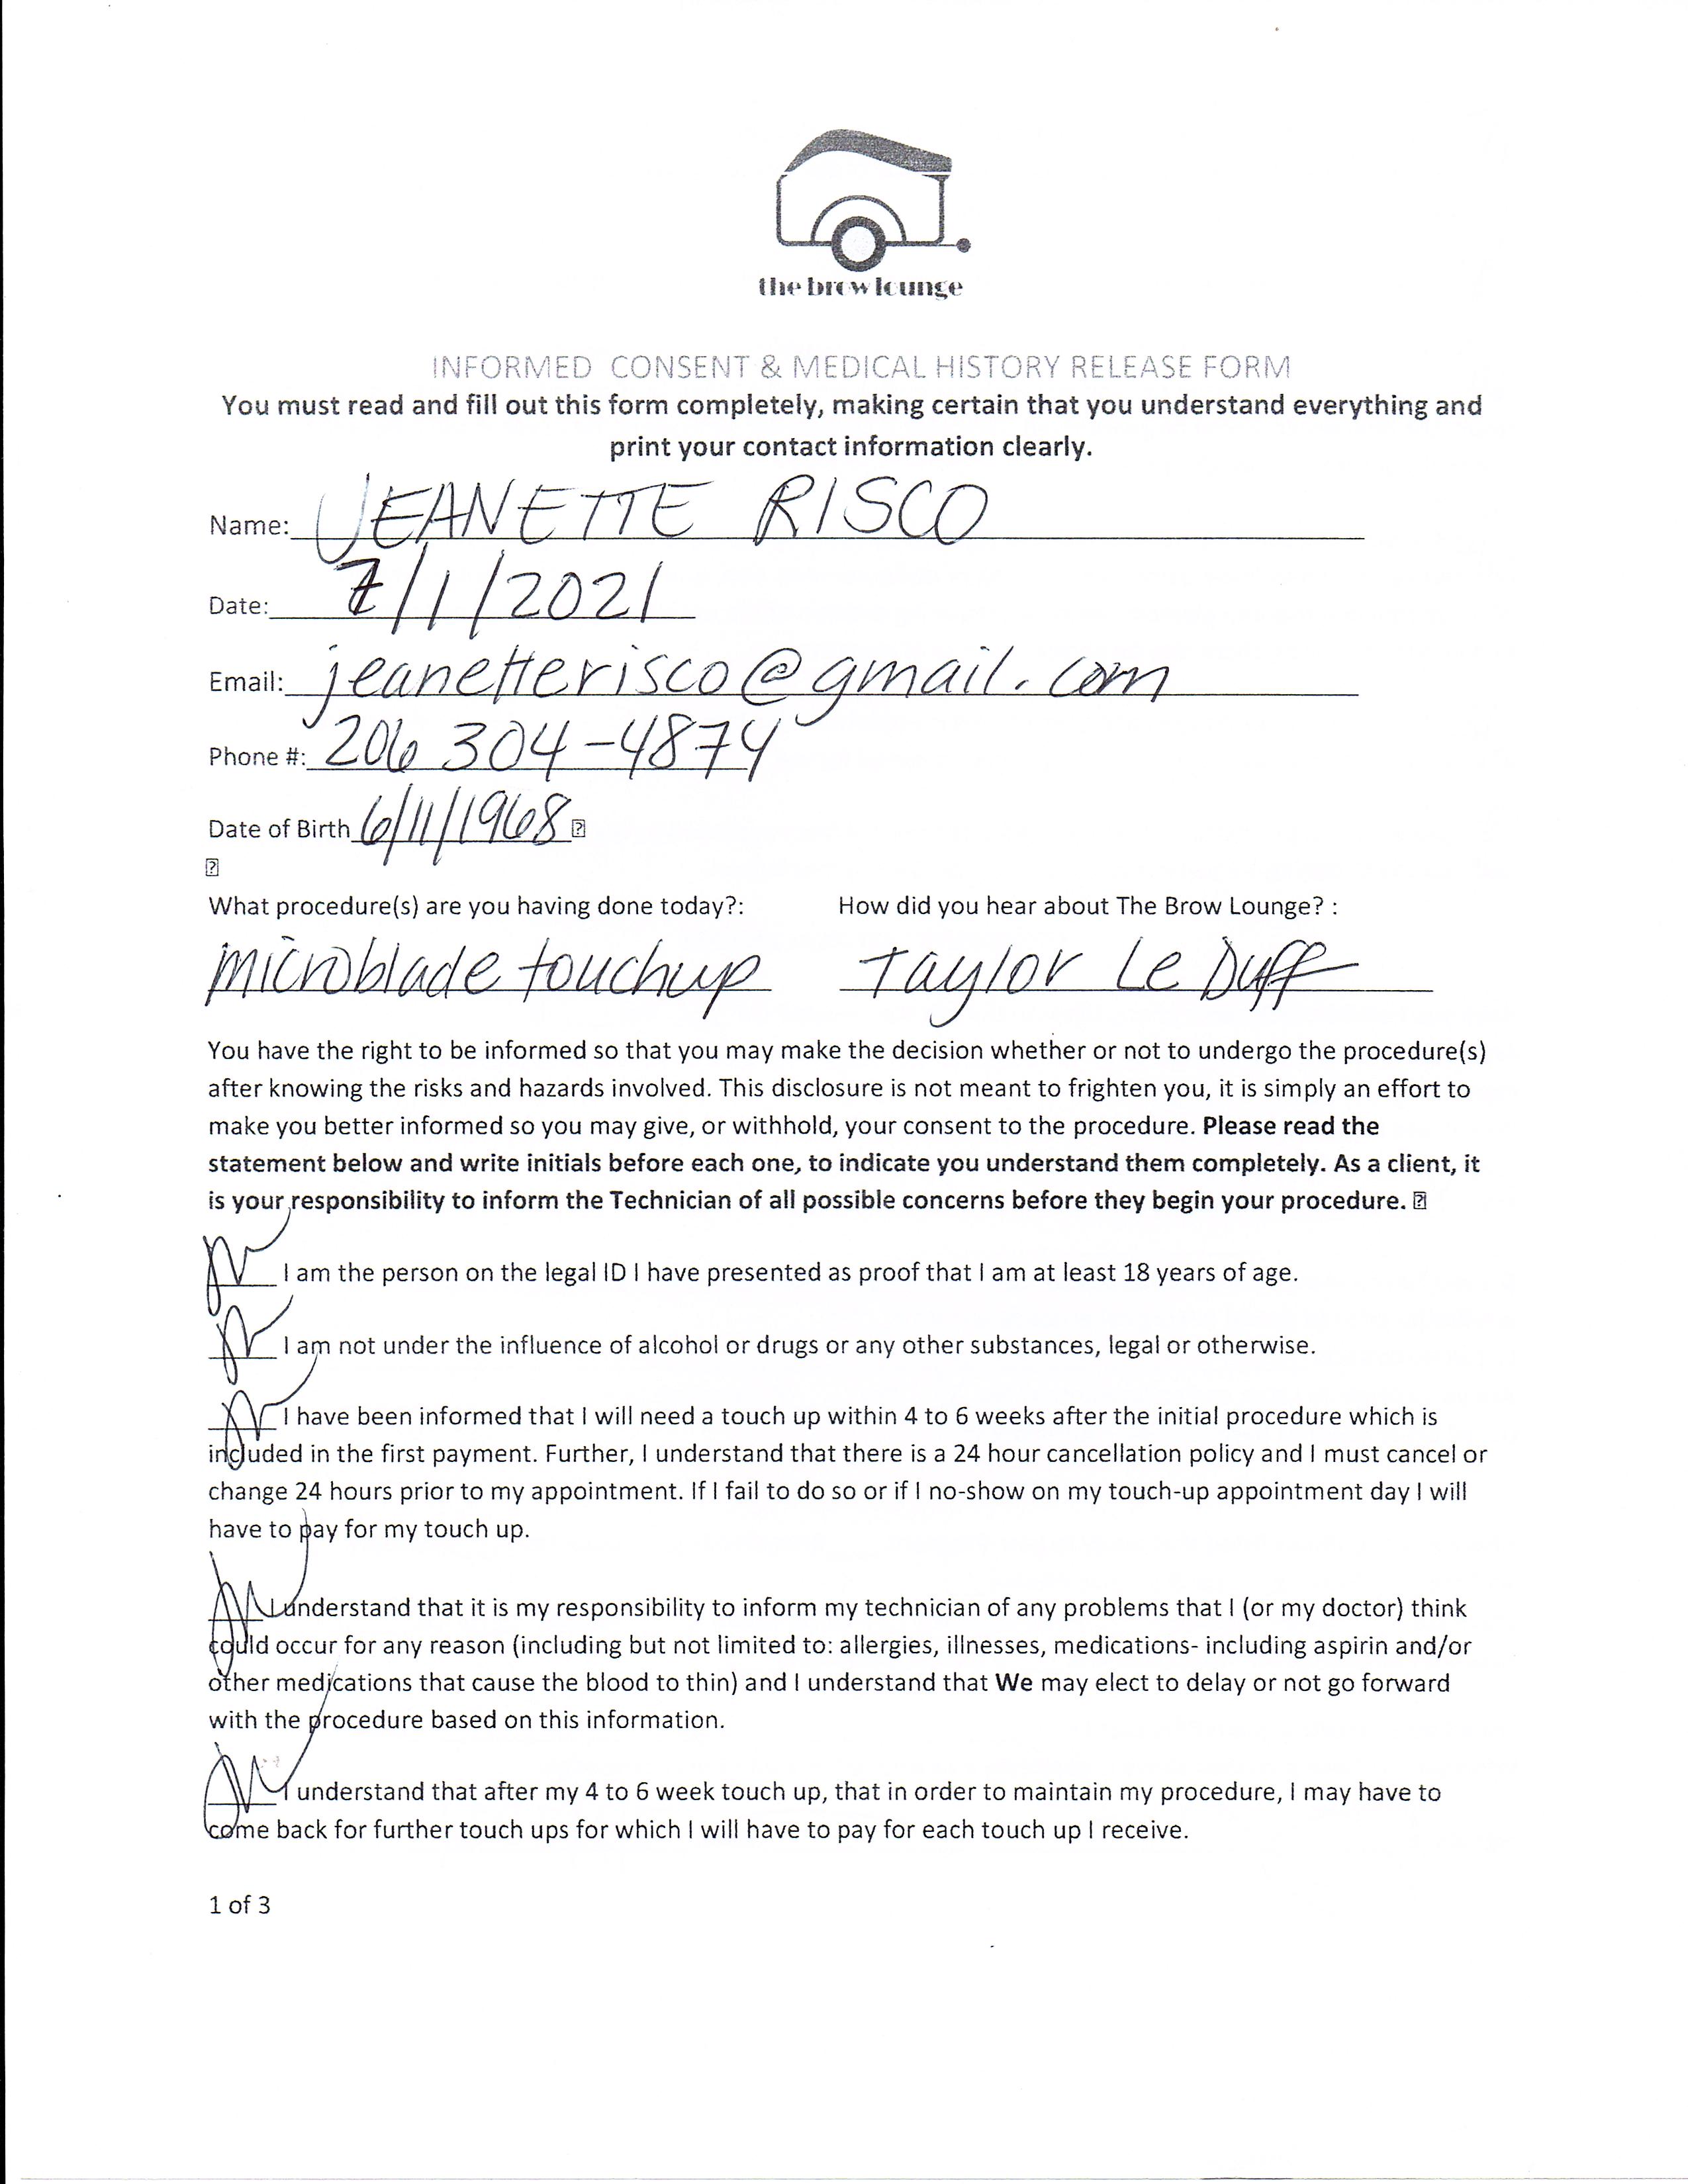 the brow lounge
INFORMED CONSENT & MEDICAL HISTORY RELEASE FORM
You must read and fill out this form completely, making certain that you understand everything and
print your contact information clearly.
Name: JEANETTE RISCO
Date: 7/1/2021
Email: jeanetterisco@gmail.com
Phone #: 206 304-4874
Date of Birth 6/11/1968
What procedure(s) are you having done today?: How did you hear about The Brow Lounge? :
microblade touchup Taylor Le Duff
You have the right to be informed so that you may make the decision whether or not to undergo the procedure(s)
after knowing the risks and hazards involved. This disclosure is not meant to frighten you, it is simply an effort to
make you better informed so you may give, or withhold, your consent to the procedure. Please read the
statement below and write initials before each one, to indicate you understand them completely. As a client, it
is your responsibility to inform the Technician of all possible concerns before they begin your procedure.
JR I am the person on the legal ID I have presented as proof that I am at least 18 years of age.
JR I am not under the influence of alcohol or drugs or any other substances, legal or otherwise.
JR I have been informed that I will need a touch up within 4 to 6 weeks after the initial procedure which is
included in the first payment. Further, I understand that there is a 24 hour cancellation policy and I must cancel or
change 24 hours prior to my appointment. If I fail to do so or if I no-show on my touch-up appointment day I will
have to pay for my touch up.
JR I understand that it is my responsibility to inform my technician of any problems that I (or my doctor) think
could occur for any reason (including but not limited to: allergies, illnesses, medications- including aspirin and/or
other medications that cause the blood to thin) and I understand that We may elect to delay or not go forward
with the procedure based on this information.
JR I understand that after my 4 to 6 week touch up, that in order to maintain my procedure, I may have to
come back for further touch ups for which I will have to pay for each touch up I receive.
1 of 3